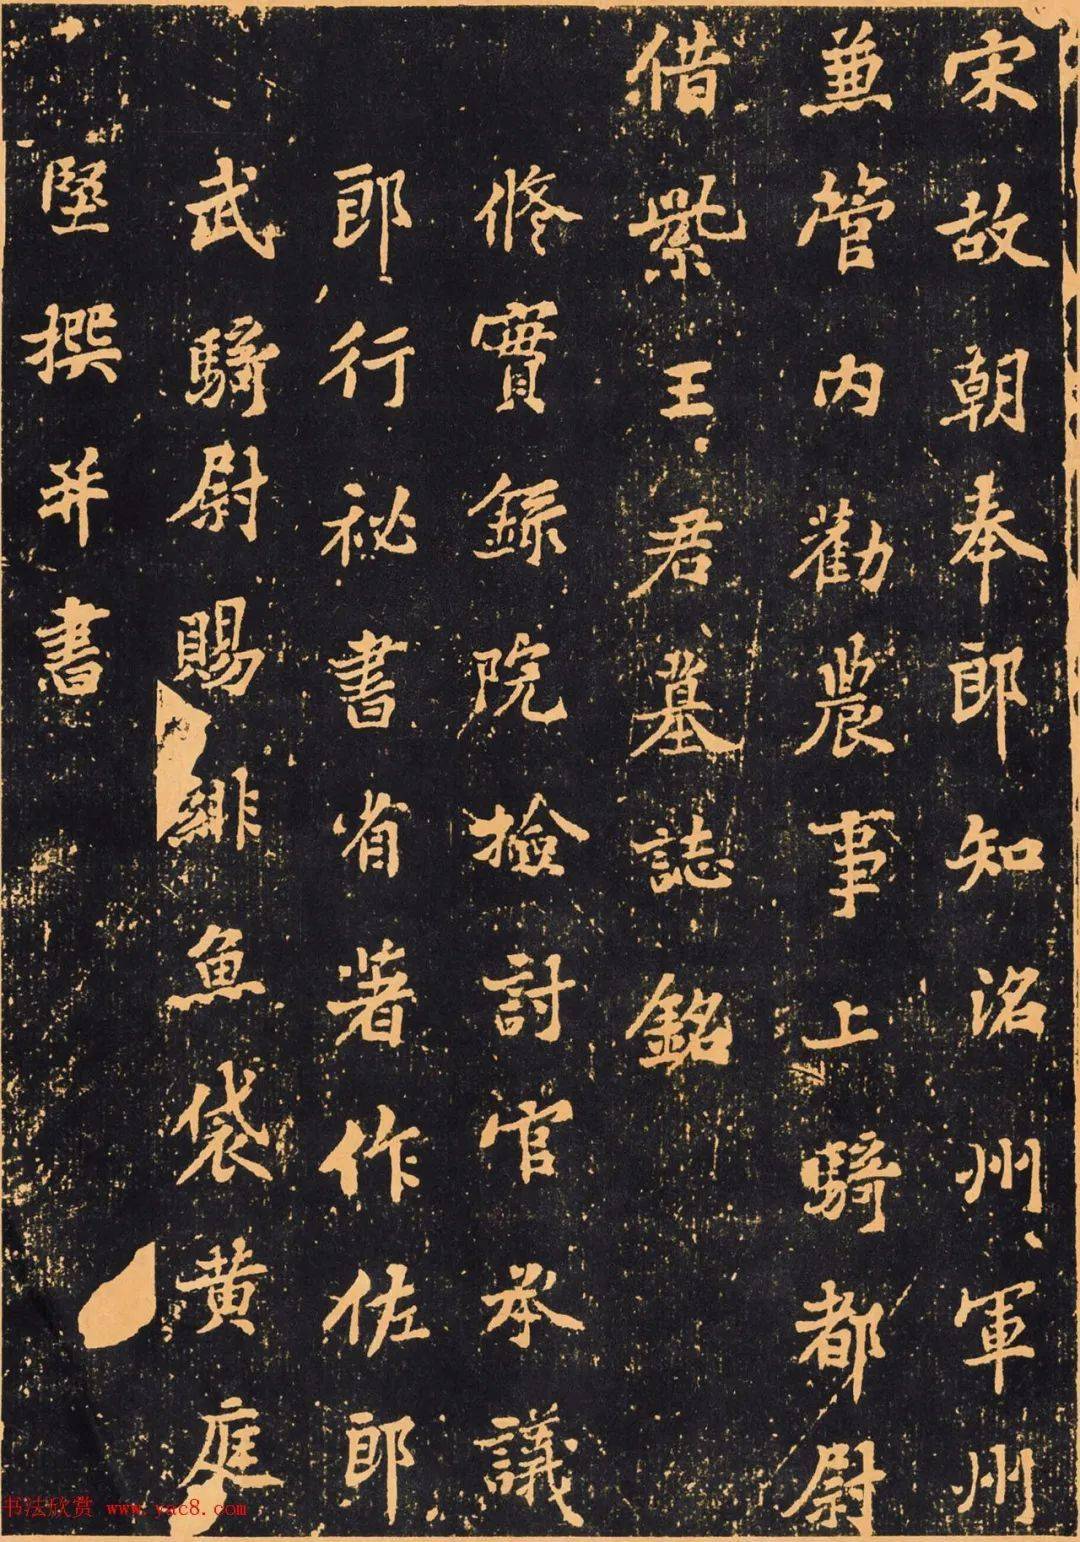 宋故朝奉郎知洺州軍州
兼管內勸農事上騎都尉
借紫王君墓誌銘
修實錄院檢討官承議
郎行祕書省著作佐郎
武騎尉賜緋魚袋黃庭
堅撰并書
书法欣赏 www.yac8.com